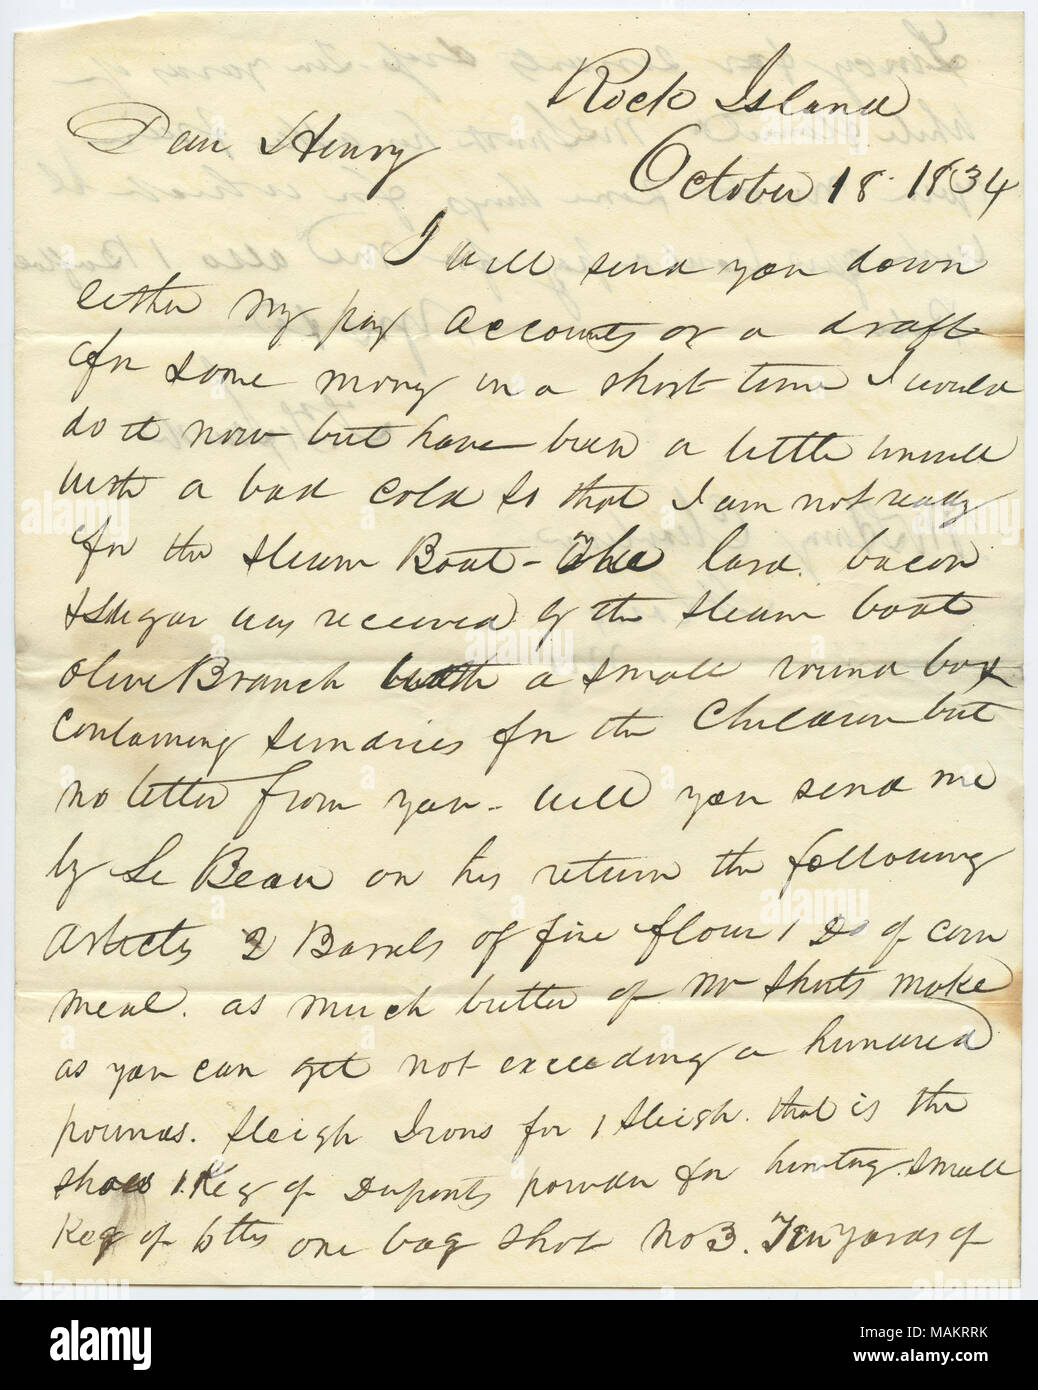 Rock Island
Dear Henry
October 18 1834
I will send you down
either my pay accounts or a draft
for some money in a short time I would
do it now but have been a little unwell
with a bad cold so that I am not ready
for the steam Boat - The lard. bacon
& sugar was received of the steam boat
Olive Branch with a small round box
containing sundries for the Children but
no letter from you - will you send me
by Le Beau on his return the following
articles 2 Barrels of fine flour 1 Do of corn
meal. as much butter of Mr Shorts make
as you can get not exceeding a hundred
pounds. Sleigh Irons for 1 Sleigh. that is the
shoes 1. Keg of Duponts powder for hunting. small
Keg of 6 tts one bag shot No 3. Ten yards of
alamy
Image ID: MAKRRK
www.alamy.com